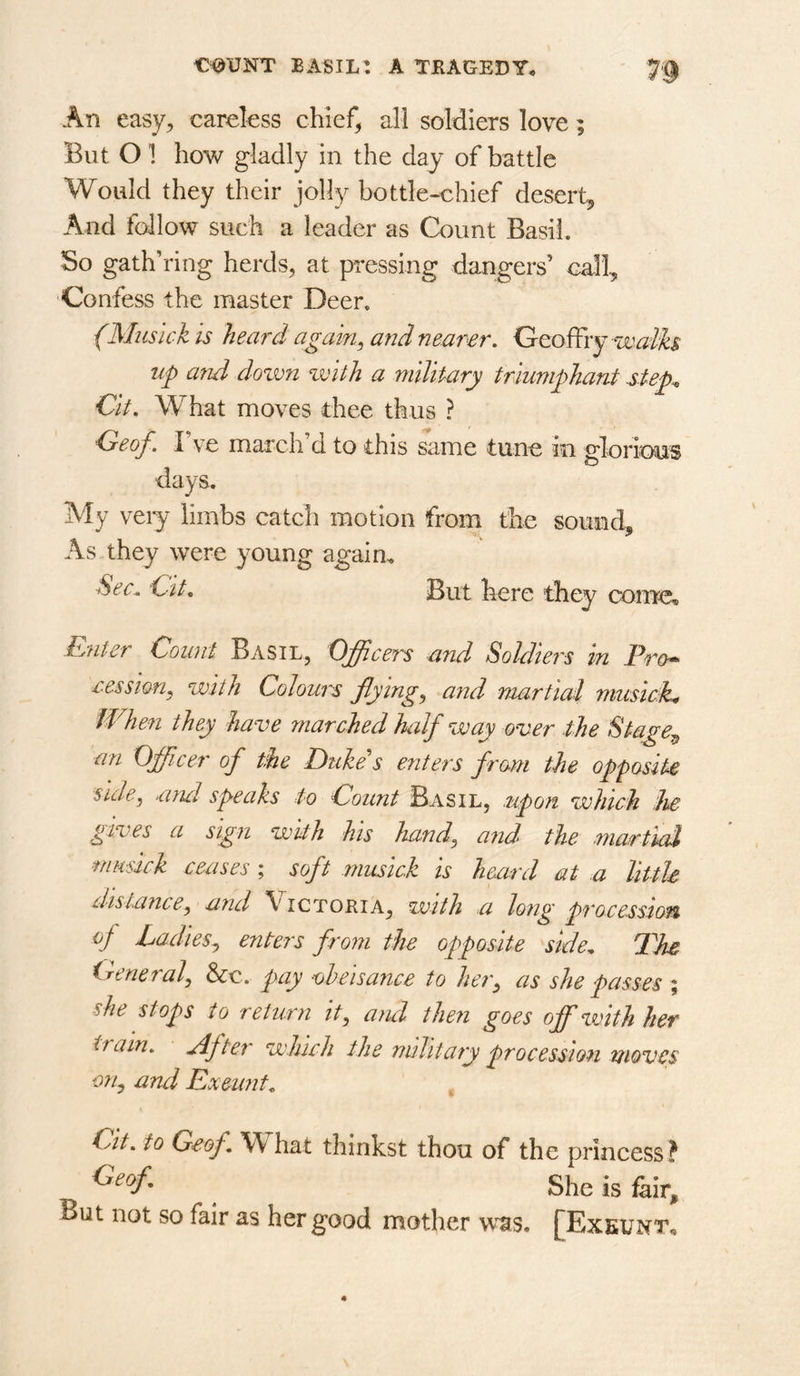 COUNT BASIL: A TRAGEDY. 79
An easy, careless chief, all soldiers love ;
But O ! how gladly in the day of battle
Would they their jolly bottle-chief desert,
And follow such a leader as Count Basil.
So gath'ring herds, at pressing dangers' call,
Confess the master Deer.
(Musick is heard again, and nearer. Geoffry walks
up and down with a military triumphant step.
Cit. What moves thee thus ?
Geof. I've march'd to this same tune in glorious
days.
My very limbs catch motion from the sound,
As they were young again.
Sec. Cit. But here they come.
Enter Count BASIL, Officers and Soldiers in Pro-
cession, with Colours flying, and martial musick.
When they have marched half way over the Stage,
an Officer of the Duke's enters from the opposite
side, and speaks to Count BASIL, upon which he
gives a sign with his hand, and the martial
musick ceases ; soft musick is heard at a little
distance, and VICTORIA, with a long procession
of Ladies, enters from the opposite side. The
General, &c. pay obeisance to her, as she passes ;
she stops to return it, and then goes off with her
train. After which the military procession moves
on, and Exeunt.
Cit. to Geof. What thinkst thou of the princess?
Geof. She is fair,
But not so fair as her good mother was. [EXEUNT.